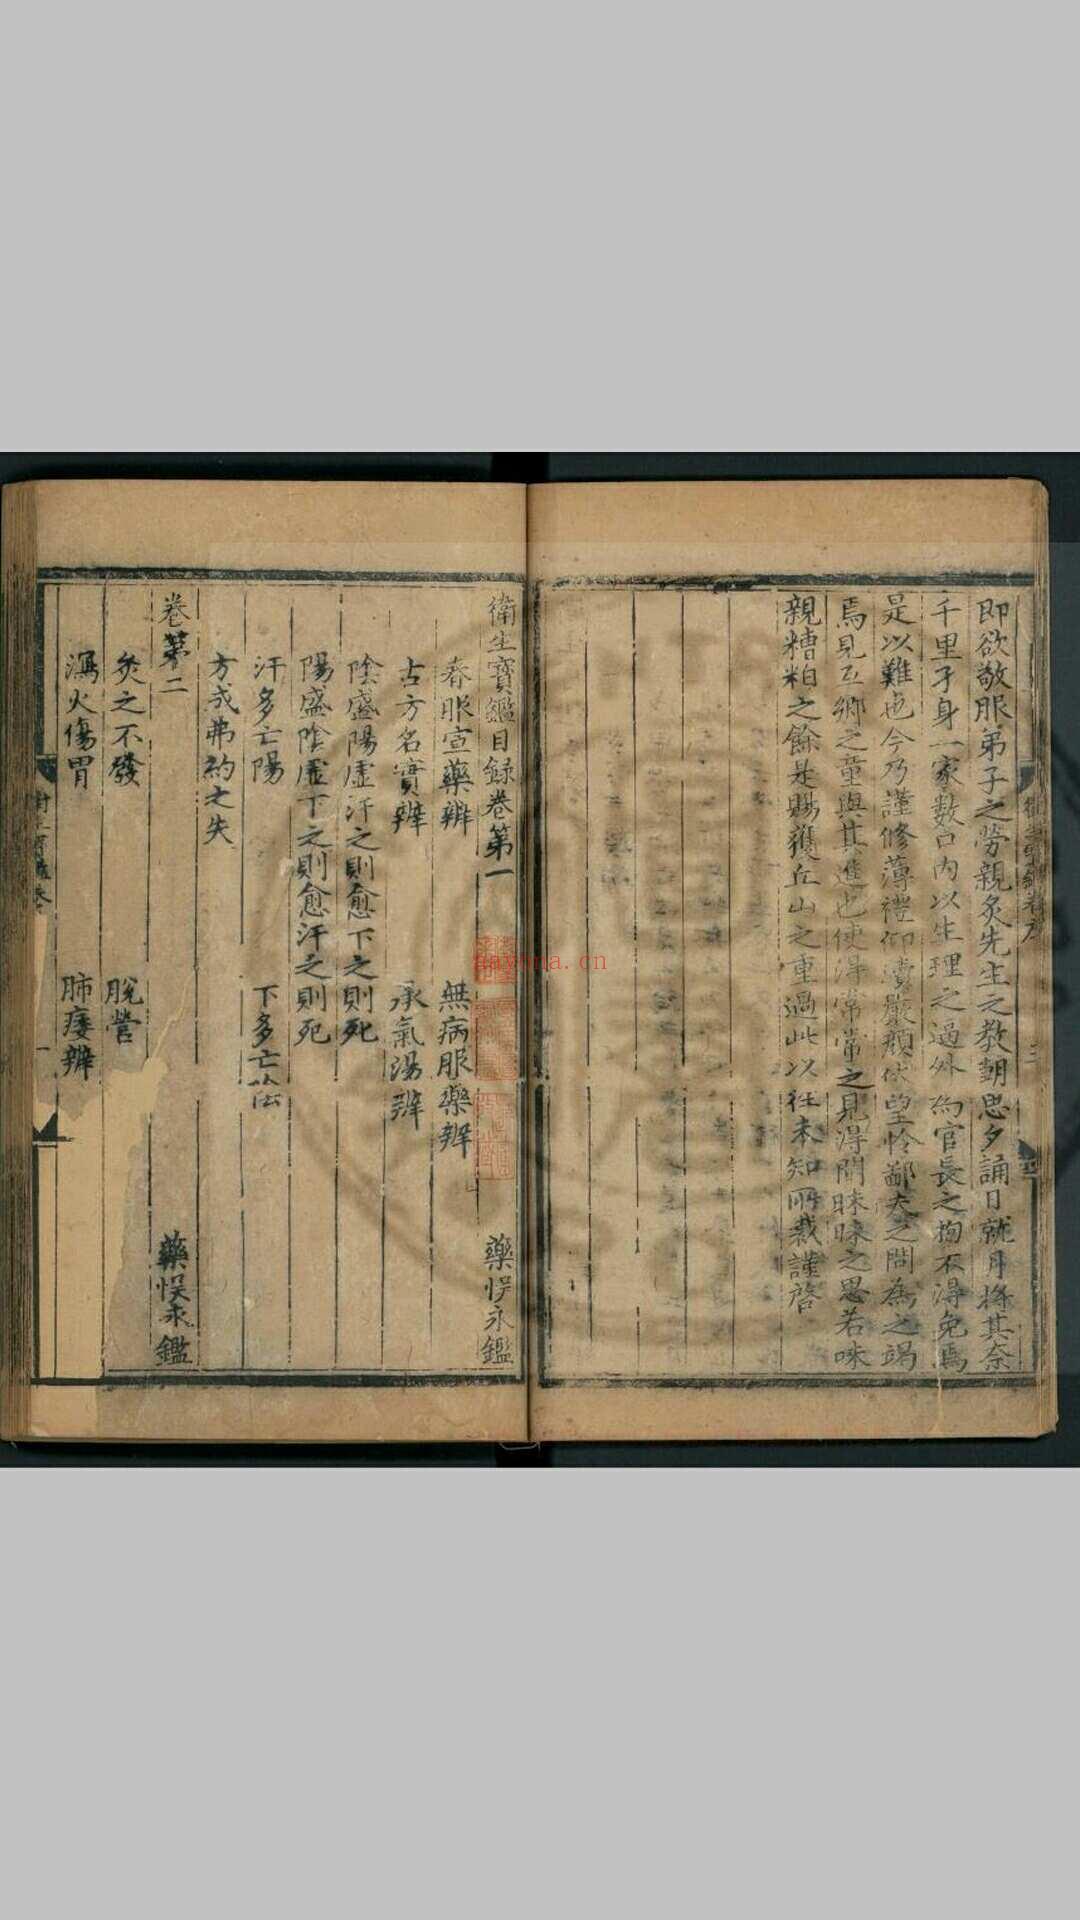 即欲敬服弟子之勞親炙先生之教朝思夕誦日就月將其奈
千里孑身一家數口內以生理之逼外為官長之拘不得免焉
是以難也今乃謹修薄禮仰瀆嚴顏伏望怜鄙夫之問為之竭
焉見互鄉之童與其進也使得常常之見得聞昧昧之思若味
親糟粕之餘是賜獲丘山之重過此以往未知所裁謹啓
三
衛生寶鑑目錄卷第一
藥悞永鑑
春服宣藥辨
無病服藥辨
古方名實辨
承氣湯辨
陰盛陽虛汗之則愈下之則死
陽盛陰虛下之則愈汗之則死
汗多亡陽
下多亡陰
方成弗約之失
卷第二
藥悞永鑑
灸之不發
脫營
瀉火傷胃
肺痿辨
一
aayona.cn